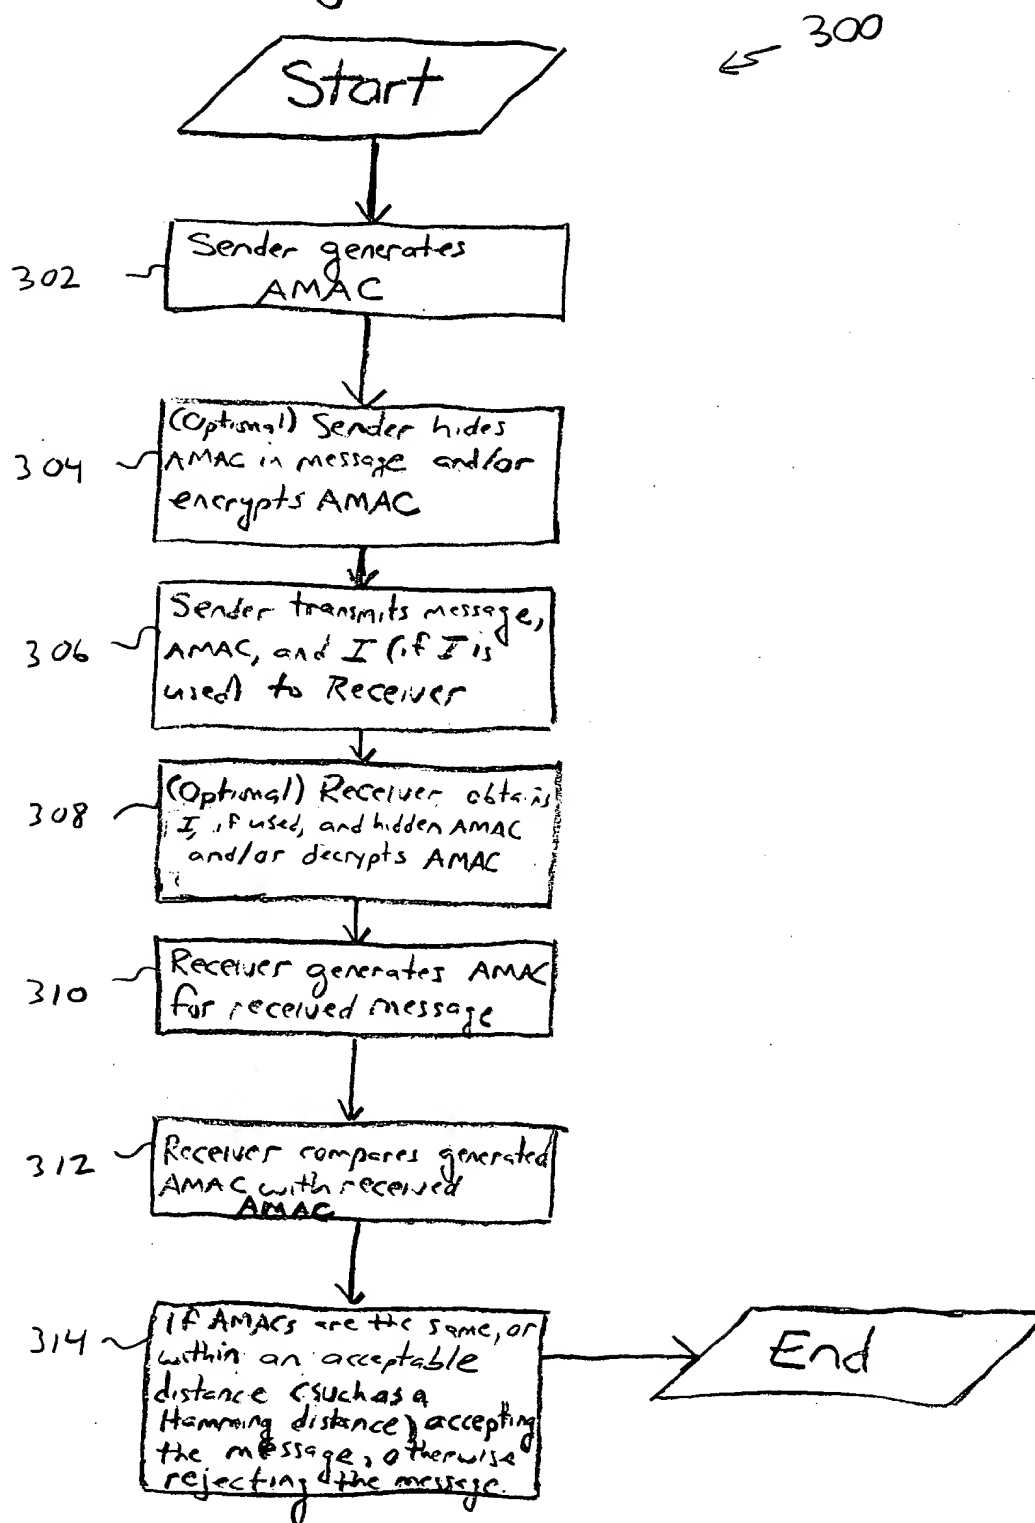 300
Start
302
Sender generates
AMAC
304
(Optional) Sender hides
AMAC in message and/or
encrypts AMAC
306
Sender transmits message,
AMAC, and I (if I is
used) to Receiver
308
(Optional) Receiver obtains
I, if used, and hidden AMAC
and/or decrypts AMAC
310
Receiver generates AMAC
for received message
312
Receiver compares generated
AMAC with received
AMAC
314
If AMACs are the same, or
within an acceptable
distance (such as a
Hamming distance) accepting
the message, otherwise
rejecting the message.
End